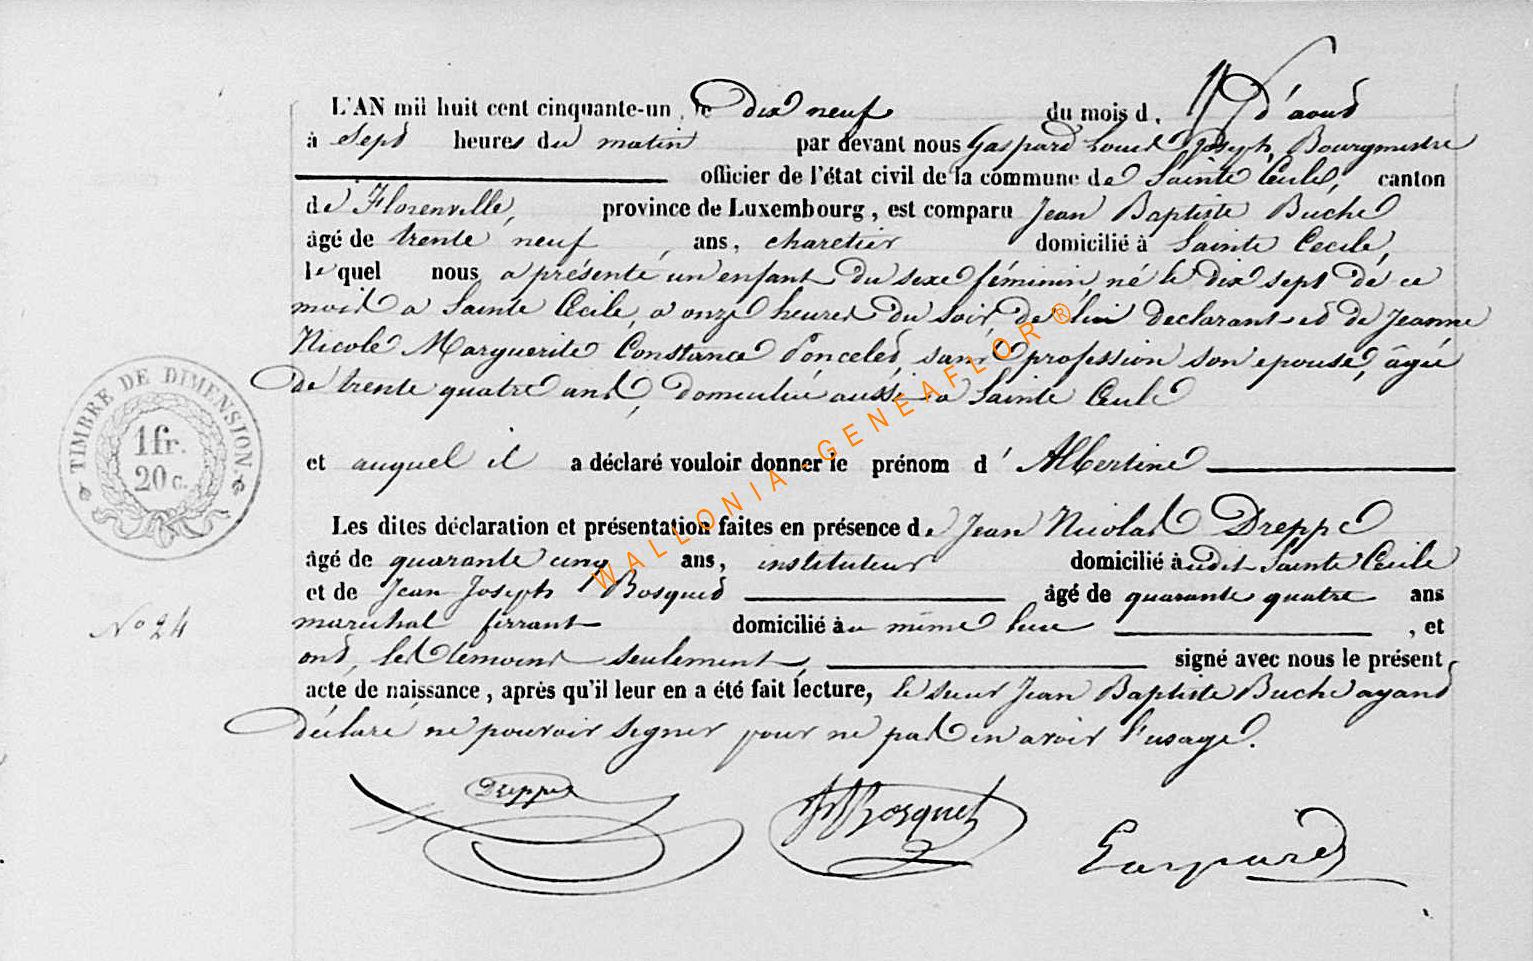 L'AN mil huit cent cinquante-un, le dix neuf du mois d. d'aout
à sept heures du matin par devant nous Gaspard Louis Joseph, Bourgmestre
officier de l'état civil de la commune de Sainte Cecile, canton
de Florenville, province de Luxembourg, est comparu Jean Baptiste Buche
âgé de trente neuf ans, charetier domicilié à Sainte Cecile,
lequel nous a présenté un enfant du sexe féminin, né le dix sept de ce
mois a Sainte Cécile, a onze heures du soir, de lui declarant et de Jeanne
Nicole Marguerite Constance Poncelet, sans profession son epouse, âgée
de trente quatre ans, domiciliée aussi a Sainte Cecile
TIMBRE DE DIMENSION.
1 fr.
20 c.
et auquel il a déclaré vouloir donner le prénom d' Albertine
Les dites déclaration et présentation faites en présence de Jean Nicolas Dreppe
âgé de quarante cinq ans, instituteur domicilié àudit Sainte Cécile
et de Jean Joseph Bosquet âgé de quarante quatre ans
No 24
maréchal ferrant domicilié àu même lieu, et
ont, les temoins seulement, signé avec nous le présent
acte de naissance, après qu'il leur en a été fait lecture, le sieur Jean Baptiste Buche ayant
déclaré ne pouvoir signer pour ne pas en avoir l'usage.
Dreppe JJBosquet Gaspard
WALLONIA-GENEAFLOR®